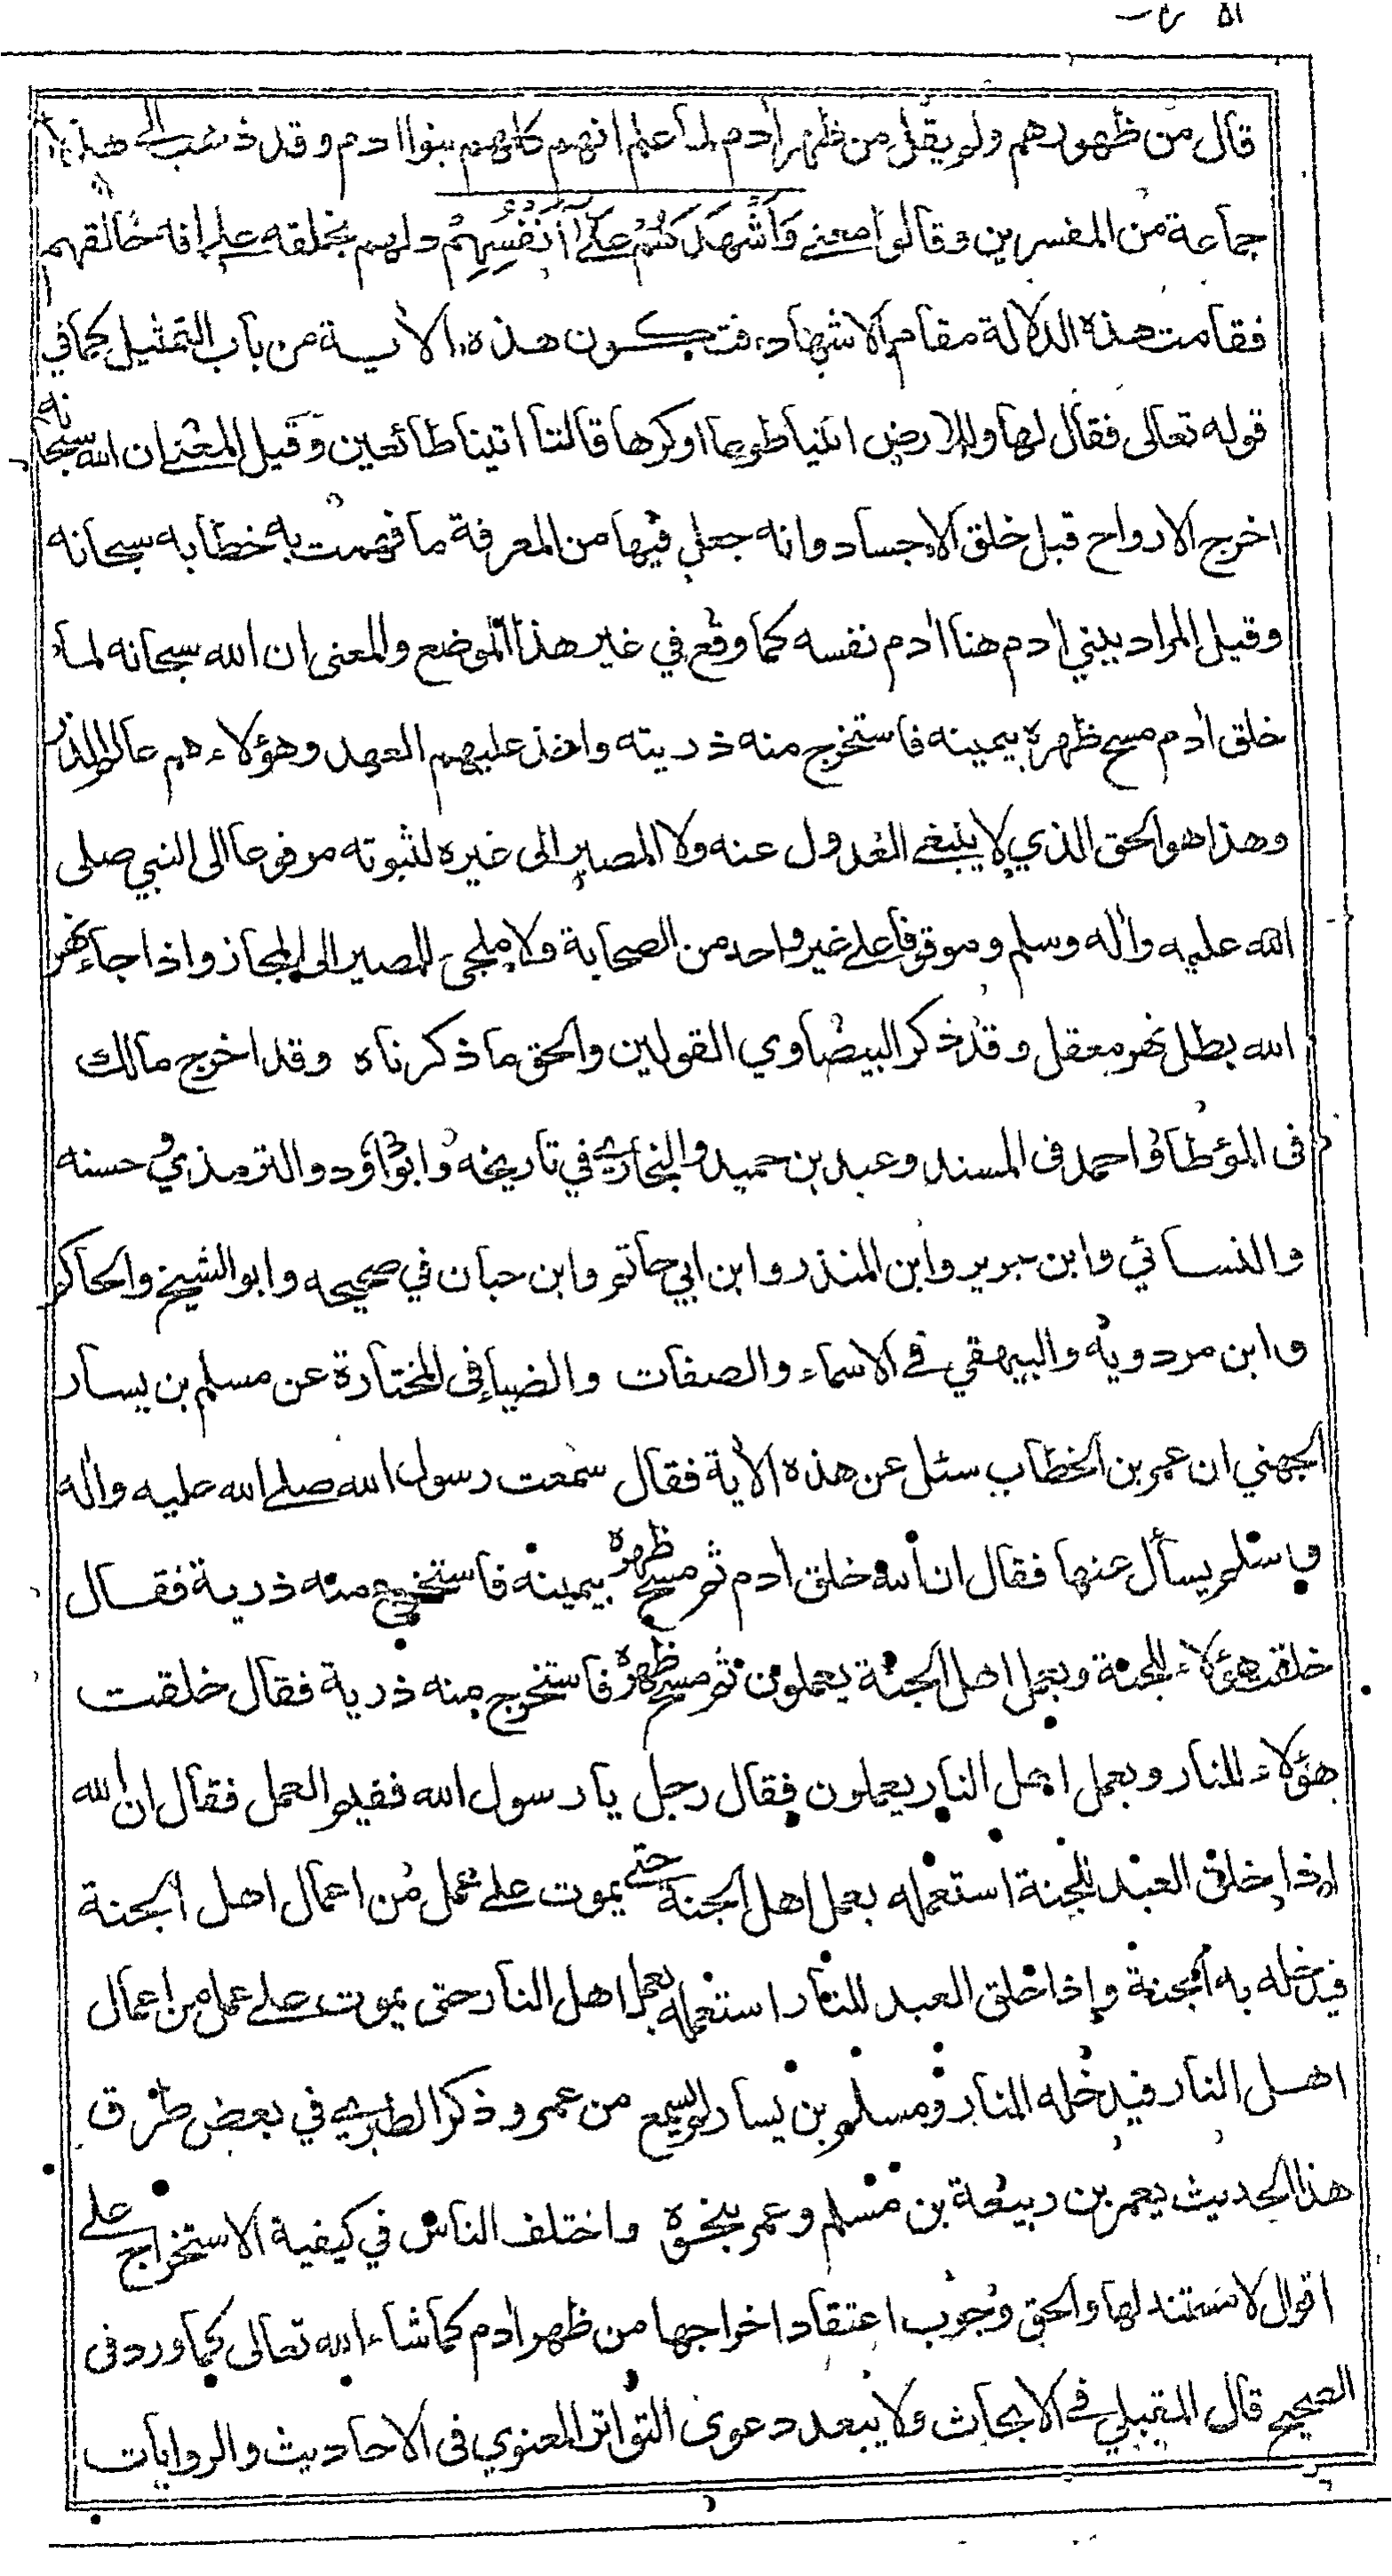 قال من ظهورهم ولم يقل من ظهر اٰدم لما علم انهم كلهم بنوا اٰدم وقد ذهب الى هذا
جماعة من المفسرين وقالوا معنى وَاَشْهَدَهُمْ عَلٰى اَنْفُسِهِمْ دلهم بخلقه على انه خالقهم
فقامت هذه الدلالة مقام الاشهاد، فتكون هذه الاٰية من باب التمثيل كما في
قوله تعالى فقال لها وللارض ائتيا طوعا او كرها قالتا اتينا طائعين وقيل المعنى ان الله سبحانه
اخرج الارواح قبل خلق الاجساد وانه جعل فيها من المعرفة ما فهمت به خطابه سبحانه
وقيل المراد ببني اٰدم هنا اٰدم نفسه كما وقع في غير هذا الموضع والمعنى ان الله سبحانه لما
خلق اٰدم مسح ظهره بيمينه فاستخرج منه ذريته واخذ عليهم العهد وهؤلاء هم عالم الذر
وهذا هو الحق الذي لا ينبغي العدول عنه ولا المصير الى غيره لثبوته مرفوعا الى النبي صلى
الله عليه واٰله وسلم وموقوفا على غير واحد من الصحابة ولا ملجئ للمصير الى المجاز واذا جاء نهر
الله بطل نهر معقل وقد ذكر البيضاوي القولين والحق ما ذكرناه وقد اخرج مالك
فى المؤطا واحمد فى المسند وعبد بن حميد والبخاري في تاريخه وابو داؤد والترمذي وحسنه
والنسائي وابن جرير وابن المنذر وابن ابي حاتم وابن حبان في صحيحه وابو الشيخ والحاكم
وابن مردويه والبيهقي في الاسماء والصفات والضيا في المختارة عن مسلم بن يسار
الجهني ان عمر بن الخطاب سئل عن هذه الاٰية فقال سمعت رسول الله صلى الله عليه واٰله
وسلم يسأل عنها فقال ان الله خلق اٰدم ثم مسح ظهره بيمينه فاستخرج منه ذرية فقال
خلقت هؤلاء للجنة وبعمل اهل الجنة يعملون ثم مسح ظهره فاستخرج منه ذرية فقال خلقت
هؤلاء للنار وبعمل اهل النار يعملون فقال رجل يا رسول الله ففيم العمل فقال ان الله
اذا خلق العبد للجنة استعمله بعمل اهل الجنة حتى يموت على عمل من اعمال اهل الجنة
فيدخله به الجنة واذا خلق العبد للنار استعمله بعمل اهل النار حتى يموت على عمل من اعمال
اهل النار فيدخله النار ومسلم بن يسار لم يسمع من عمر وذكر الطبري في بعض طرق
هذا الحديث يعمر بن ربيعة بن مسلم وعمر واختلف الناس في كيفية الاستخراج على
اقوال لا مستند لها والحق وجوب اعتقاد اخراجها من ظهر اٰدم كما شاء الله تعالى كما ورد فى
الصحيح قال المقبلي في الابحاث ولا يبعد دعوى التواتر المعنوي فى الاحاديث والروايات